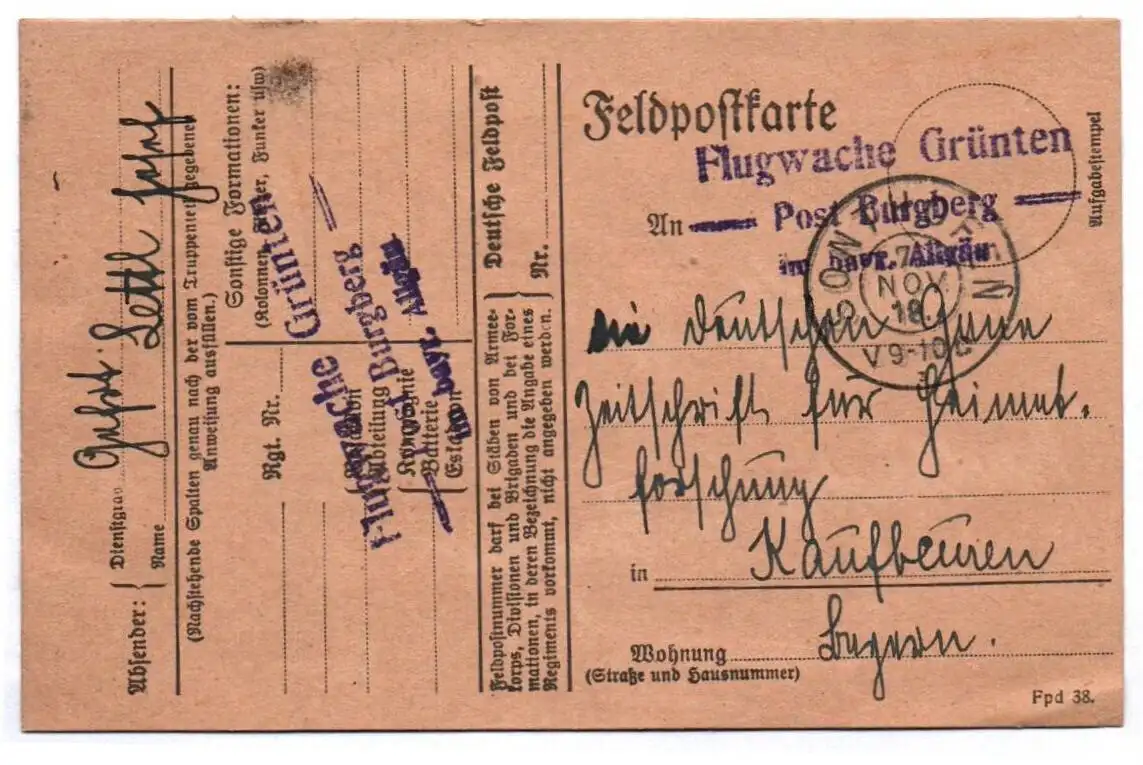 Feldpostkarte
Flugwache Grünten
Post Burgberg
im bayr. Allgäu
An
SONTHOFEN
7
NOV
18.
V 9-10
Aufgabestempel
Deutschen Gaue
Zeitschrift für Heimat-
forschung
in Kaufbeuren
Bayern.
Wohnung
(Straße und Hausnummer)
Fpd 38.
Absender: { Dienstgrad
Name
Gefrt. Lettl
(Nachstehende Spalten genau nach der vom Truppenteil gegebenen
Anweisung ausfüllen.)
Sonstige Formationen:
(Kolonnen, Funker usw)
Rgt. Nr.
Bataillon
Abteilung
Kompagnie
Batterie
Eskadron
Flugwache Grünten
Post Burgberg
im bayr. Allgäu
Deutsche Feldpost
Nr.
Feldpostnummer darf bei Stäben von Armee-
korps, Divisionen und Brigaden und bei For-
mationen, in deren Bezeichnung die Angabe eines
Regiments vorkommt, nicht angegeben werden.